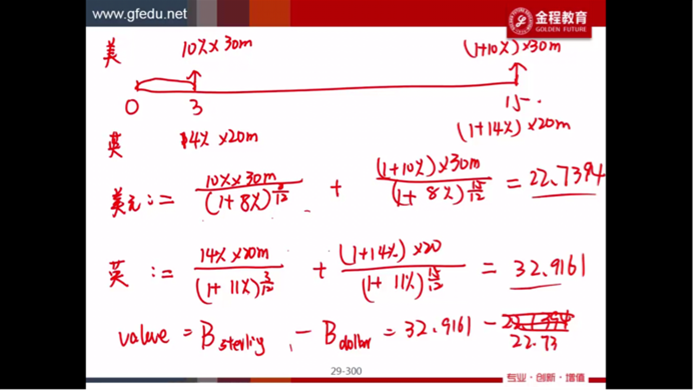 www.gfedu.net
金程教育
GOLDEN FUTURE
美 10%×30m (1+10%)×30m
0 3 15
英 14%×20m (1+14%)×20m
美元:= 10%×30m/(1+8%)^3/12 + (1+10%)×30m/(1+8%)^15/12 = 22.7394
英:= 14%×20m/(1+11%)^3/12 + (1+14%)×20/(1+11%)^15/12 = 32.9161
value = B sterling - B dollar = 32.9161 - 22.7394
22.73
29-300
专业·创新·增值